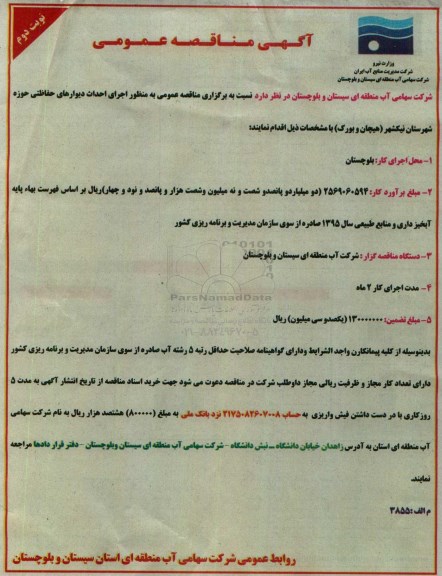 نوبت دوم
آگهی مناقصه عمومی
وزارت نیرو
شرکت مدیریت منابع آب ایران
شرکت سهامی آب منطقه ای سیستان و بلوچستان
شرکت سهامی آب منطقه ای سیستان و بلوچستان در نظر دارد نسبت به برگزاری مناقصه عمومی به منظور اجرای احداث دیوارهای حفاظتی حوزه
شهرستان نیکشهر (هیچان و بورک) با مشخصات ذیل اقدام نمایند:
۱- محل اجرای کار: بلوچستان
۲- مبلغ برآورد کار: ۲۵۶۹۰۶۰۵۹۴ (دو میلیاردو پانصدو شصت و نه میلیون وشصت هزار و پانصد و نود و چهار)ریال بر اساس فهرست بهاء پایه
آبخیز داری و منابع طبیعی سال ۱۳۹۵ صادره از سوی سازمان مدیریت و برنامه ریزی کشور
۳- دستگاه مناقصه گزار: شرکت آب منطقه ای سیستان و بلوچستان
۴- مدت اجرای کار ۲ ماه
۵- مبلغ تضمین: ۱۳۰۰۰۰۰۰۰ (یکصدو سی میلیون) ریال
بدینوسیله از کلیه پیمانکاران واجد الشرایط ودارای گواهینامه صلاحیت حداقل رتبه ۵ رشته آب صادره از سوی سازمان مدیریت و برنامه ریزی کشور
دارای تعداد کار مجاز و ظرفیت ریالی مجاز داوطلب شرکت در مناقصه دعوت می شود جهت خرید اسناد مناقصه از تاریخ انتشار آگهی به مدت ۵
روزکاری با در دست داشتن فیش واریزی به حساب ۲۱۷۵۰۸۲۶۰۷۰۰۸ نزد بانک ملی به مبلغ (۸۰۰۰۰۰) هشتصد هزار ریال به نام شرکت سهامی
آب منطقه ای استان به آدرس زاهدان خیابان دانشگاه – نبش دانشگاه - شرکت سهامی آب منطقه ای سیستان وبلوچستان - دفتر قرار دادها مراجعه
نمایند.
م الف: ۳۸۵۵
روابط عمومی شرکت سهامی آب منطقه ای استان سیستان و بلوچستان
ParsNamadData